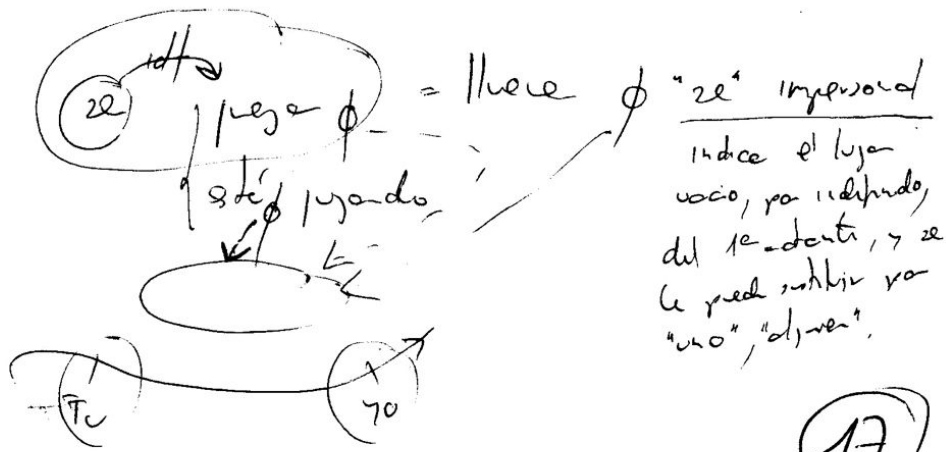 se
juega ϕ = llueve ϕ
está jugando
ϕ
Tú
yo
"se" impersonal
indica el lugar
vacío, por indefinido,
del 1er actante, y se
le puede sustituir por
"uno", "alguien".
17